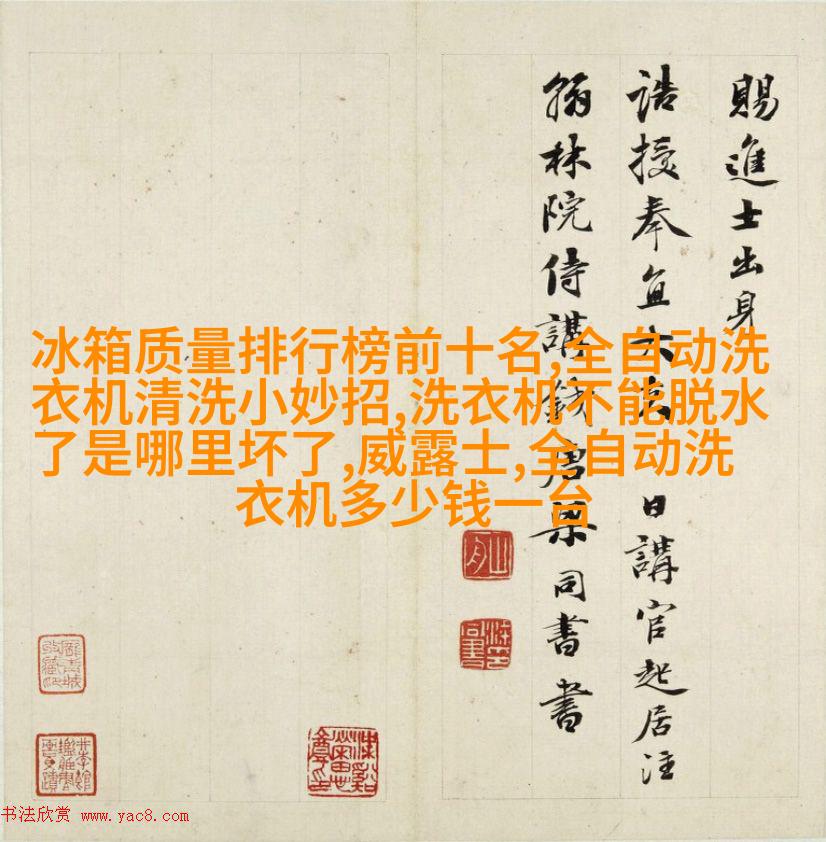 賜進士出身
誥授奉直大夫日講官起居注
翰林院侍講錢唐梁同書書
冰箱质量排行榜前十名,全自动洗
衣机清洗小妙招,洗衣机不能脱水
了是哪里坏了,威露士,全自动洗
衣机多少钱一台
书法欣赏 www.yac8.com